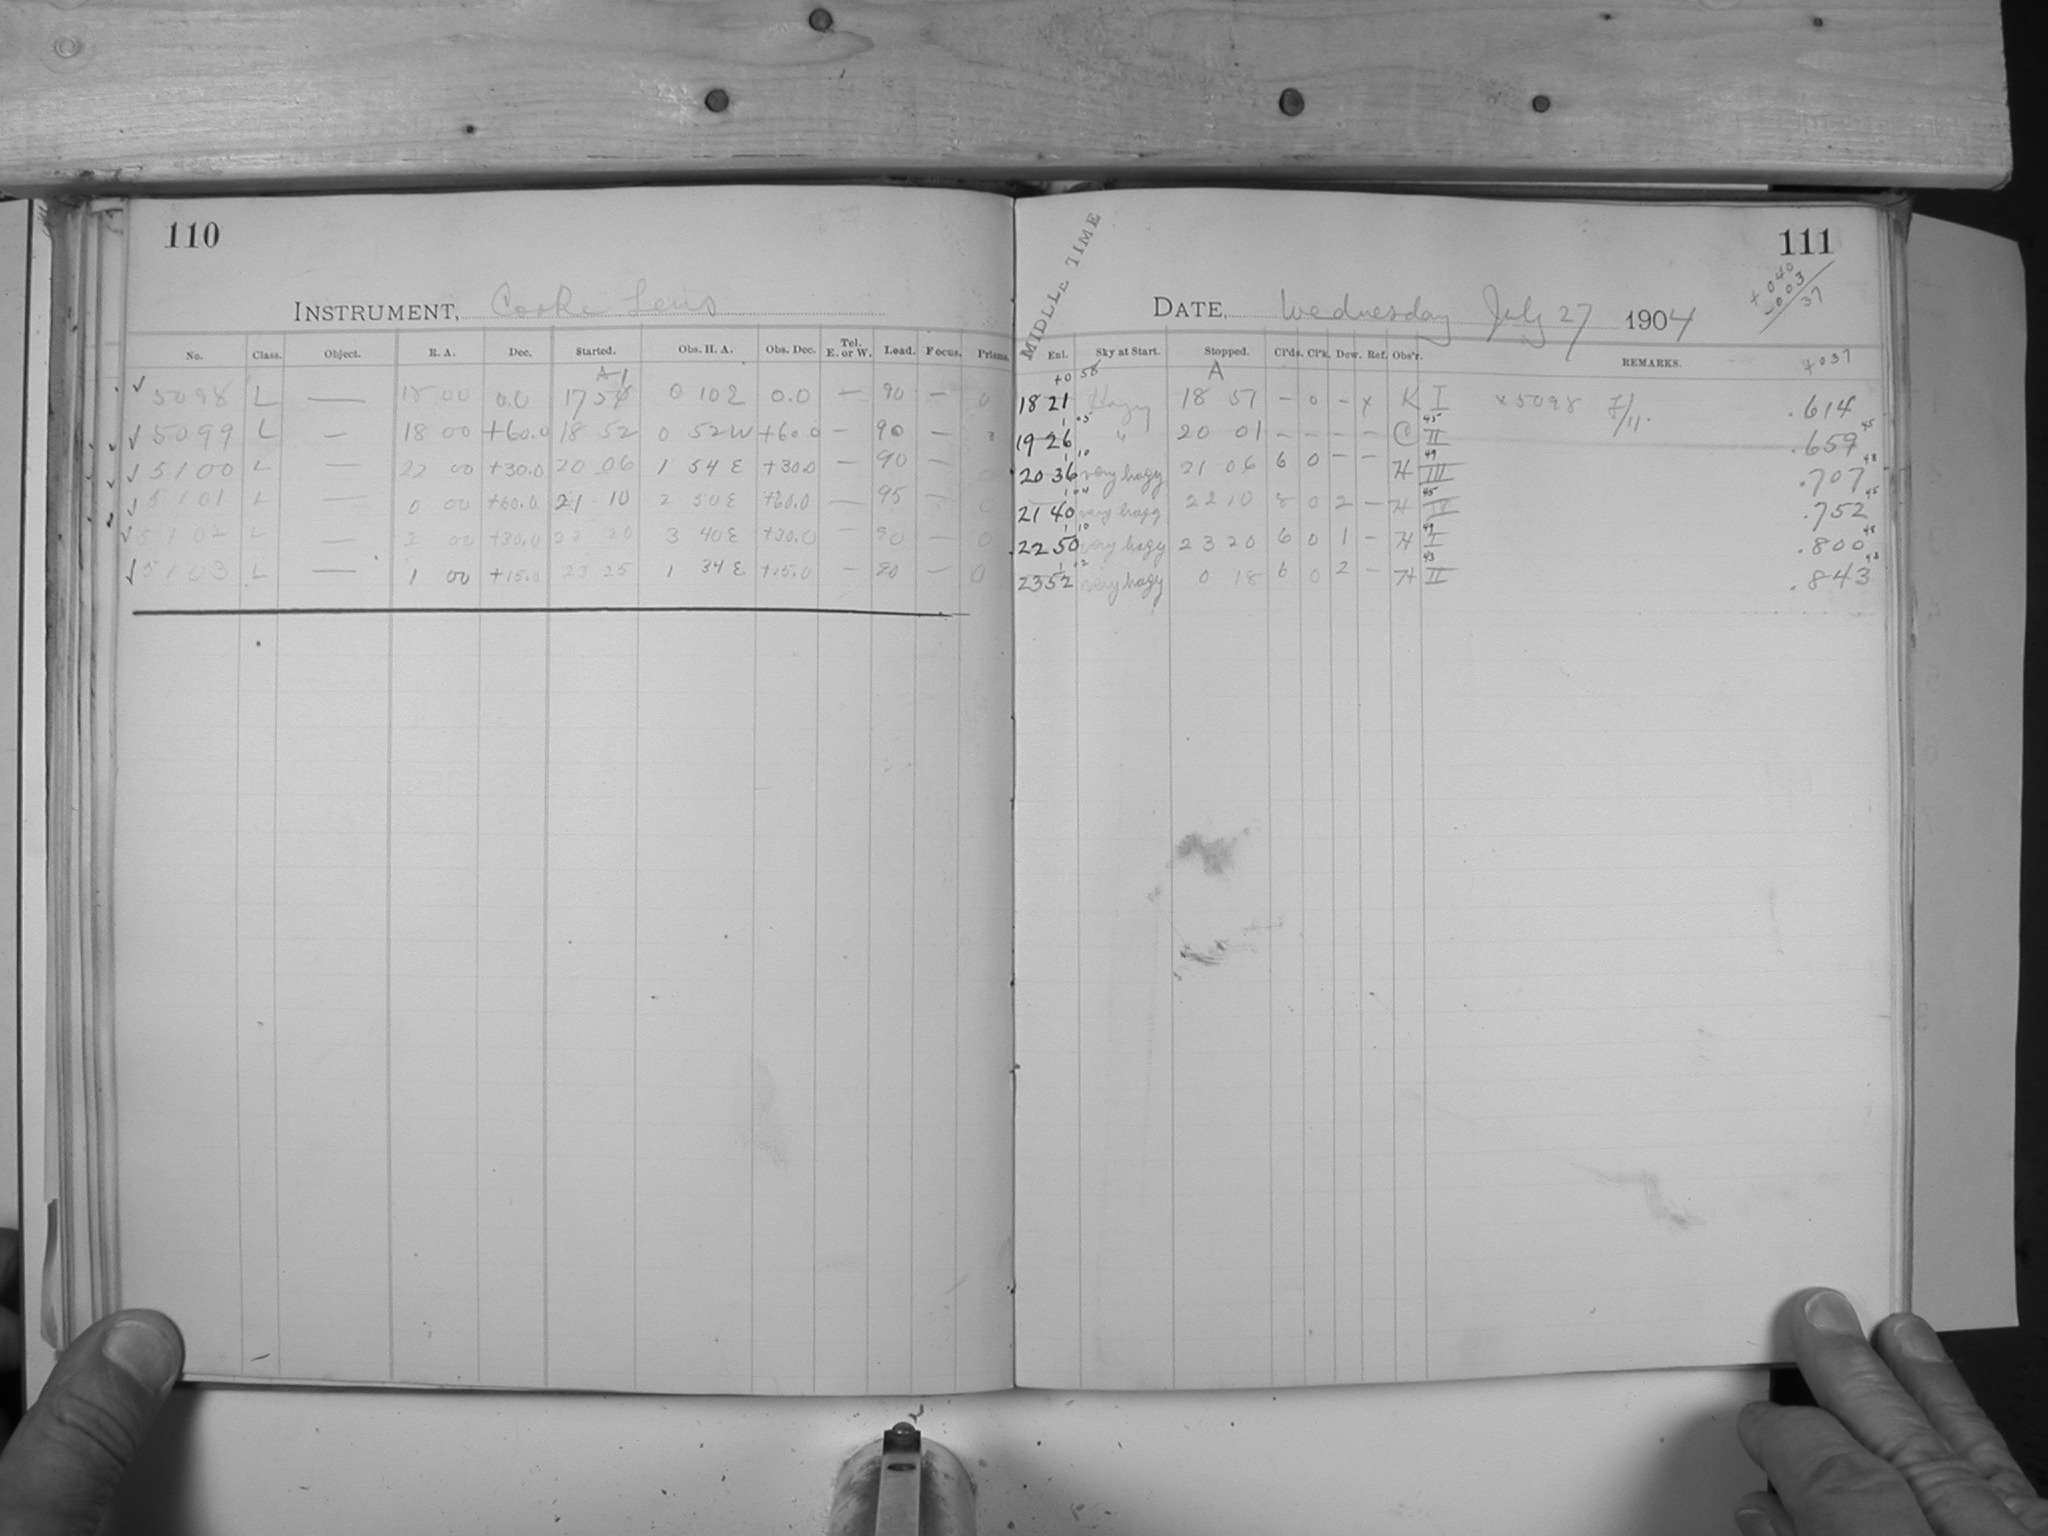 110
INSTRUMENT, Cooke Lens
No. Class. Object. R. A. Dec. Started. Obs. H. A. Obs. Dec. Tel. E. or W. Load. Focus. Prisms.
✓ 5098 L — 18 00 0.0 17 51 0 10 E 0.0 — 90 — 0
✓ 5099 L — 18 00 +60.0 18 52 0 52 W +60.0 — 90 —
✓ 5100 L — 22 00 +30.0 20 06 1 54 E +30.0 — 90 —
✓ 5101 L — 0 00 +60.0 21 10 2 50 E +60.0 — 95 —
✓ 5102 L — 2 00 +30.0 22 20 3 40 E +30.0 — 90 — 0
✓ 5103 L — 1 00 +15.0 23 25 1 34 E +15.0 — 90 — 0
MIDLLE TIME
111
+040
-003
37
DATE, Wednesday July 27 1904
Enl. Sky at Start. Stopped. Cl'ds. Cl'k. Dew. Ref. Obs'r. REMARKS. +037
+0 58 A
18 21 Hazy 18 51 — 0 — x K I x 5098 F/11. .614
19 26 " 20 01 — — — — C II .659 45
20 36 very hazy 21 06 6 0 — — H III .707 48
21 40 very hazy 22 10 8 0 2 — H IV .752 45
22 50 very hazy 23 20 6 0 1 — H I .800 48
23 52 very hazy 0 18 6 0 2 — H II .843 43